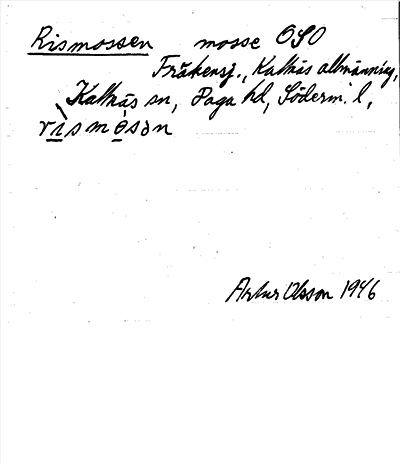 Rismossen mosse OSO
Fräkensj., Kattnäs allmänning,
Kattnäs sn, Daga hd, Söderm. l,
rìsmosən
Artur Olsson 1946